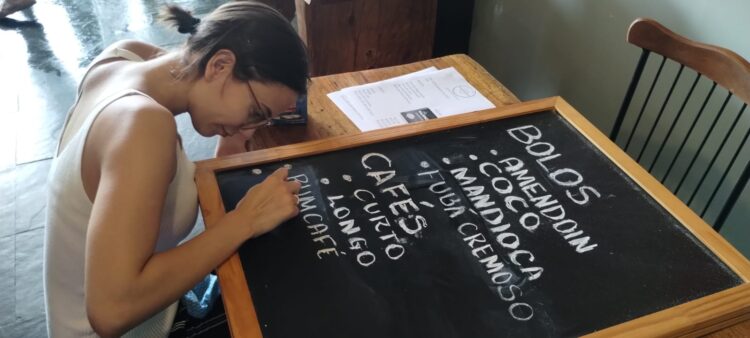 BOLOS
• AMENDOIN
• COCO
• MANDIOCA
• FUBÁ CREMOSO
CAFÉS
• CURTO
• LONGO
• RUMCAFÉ